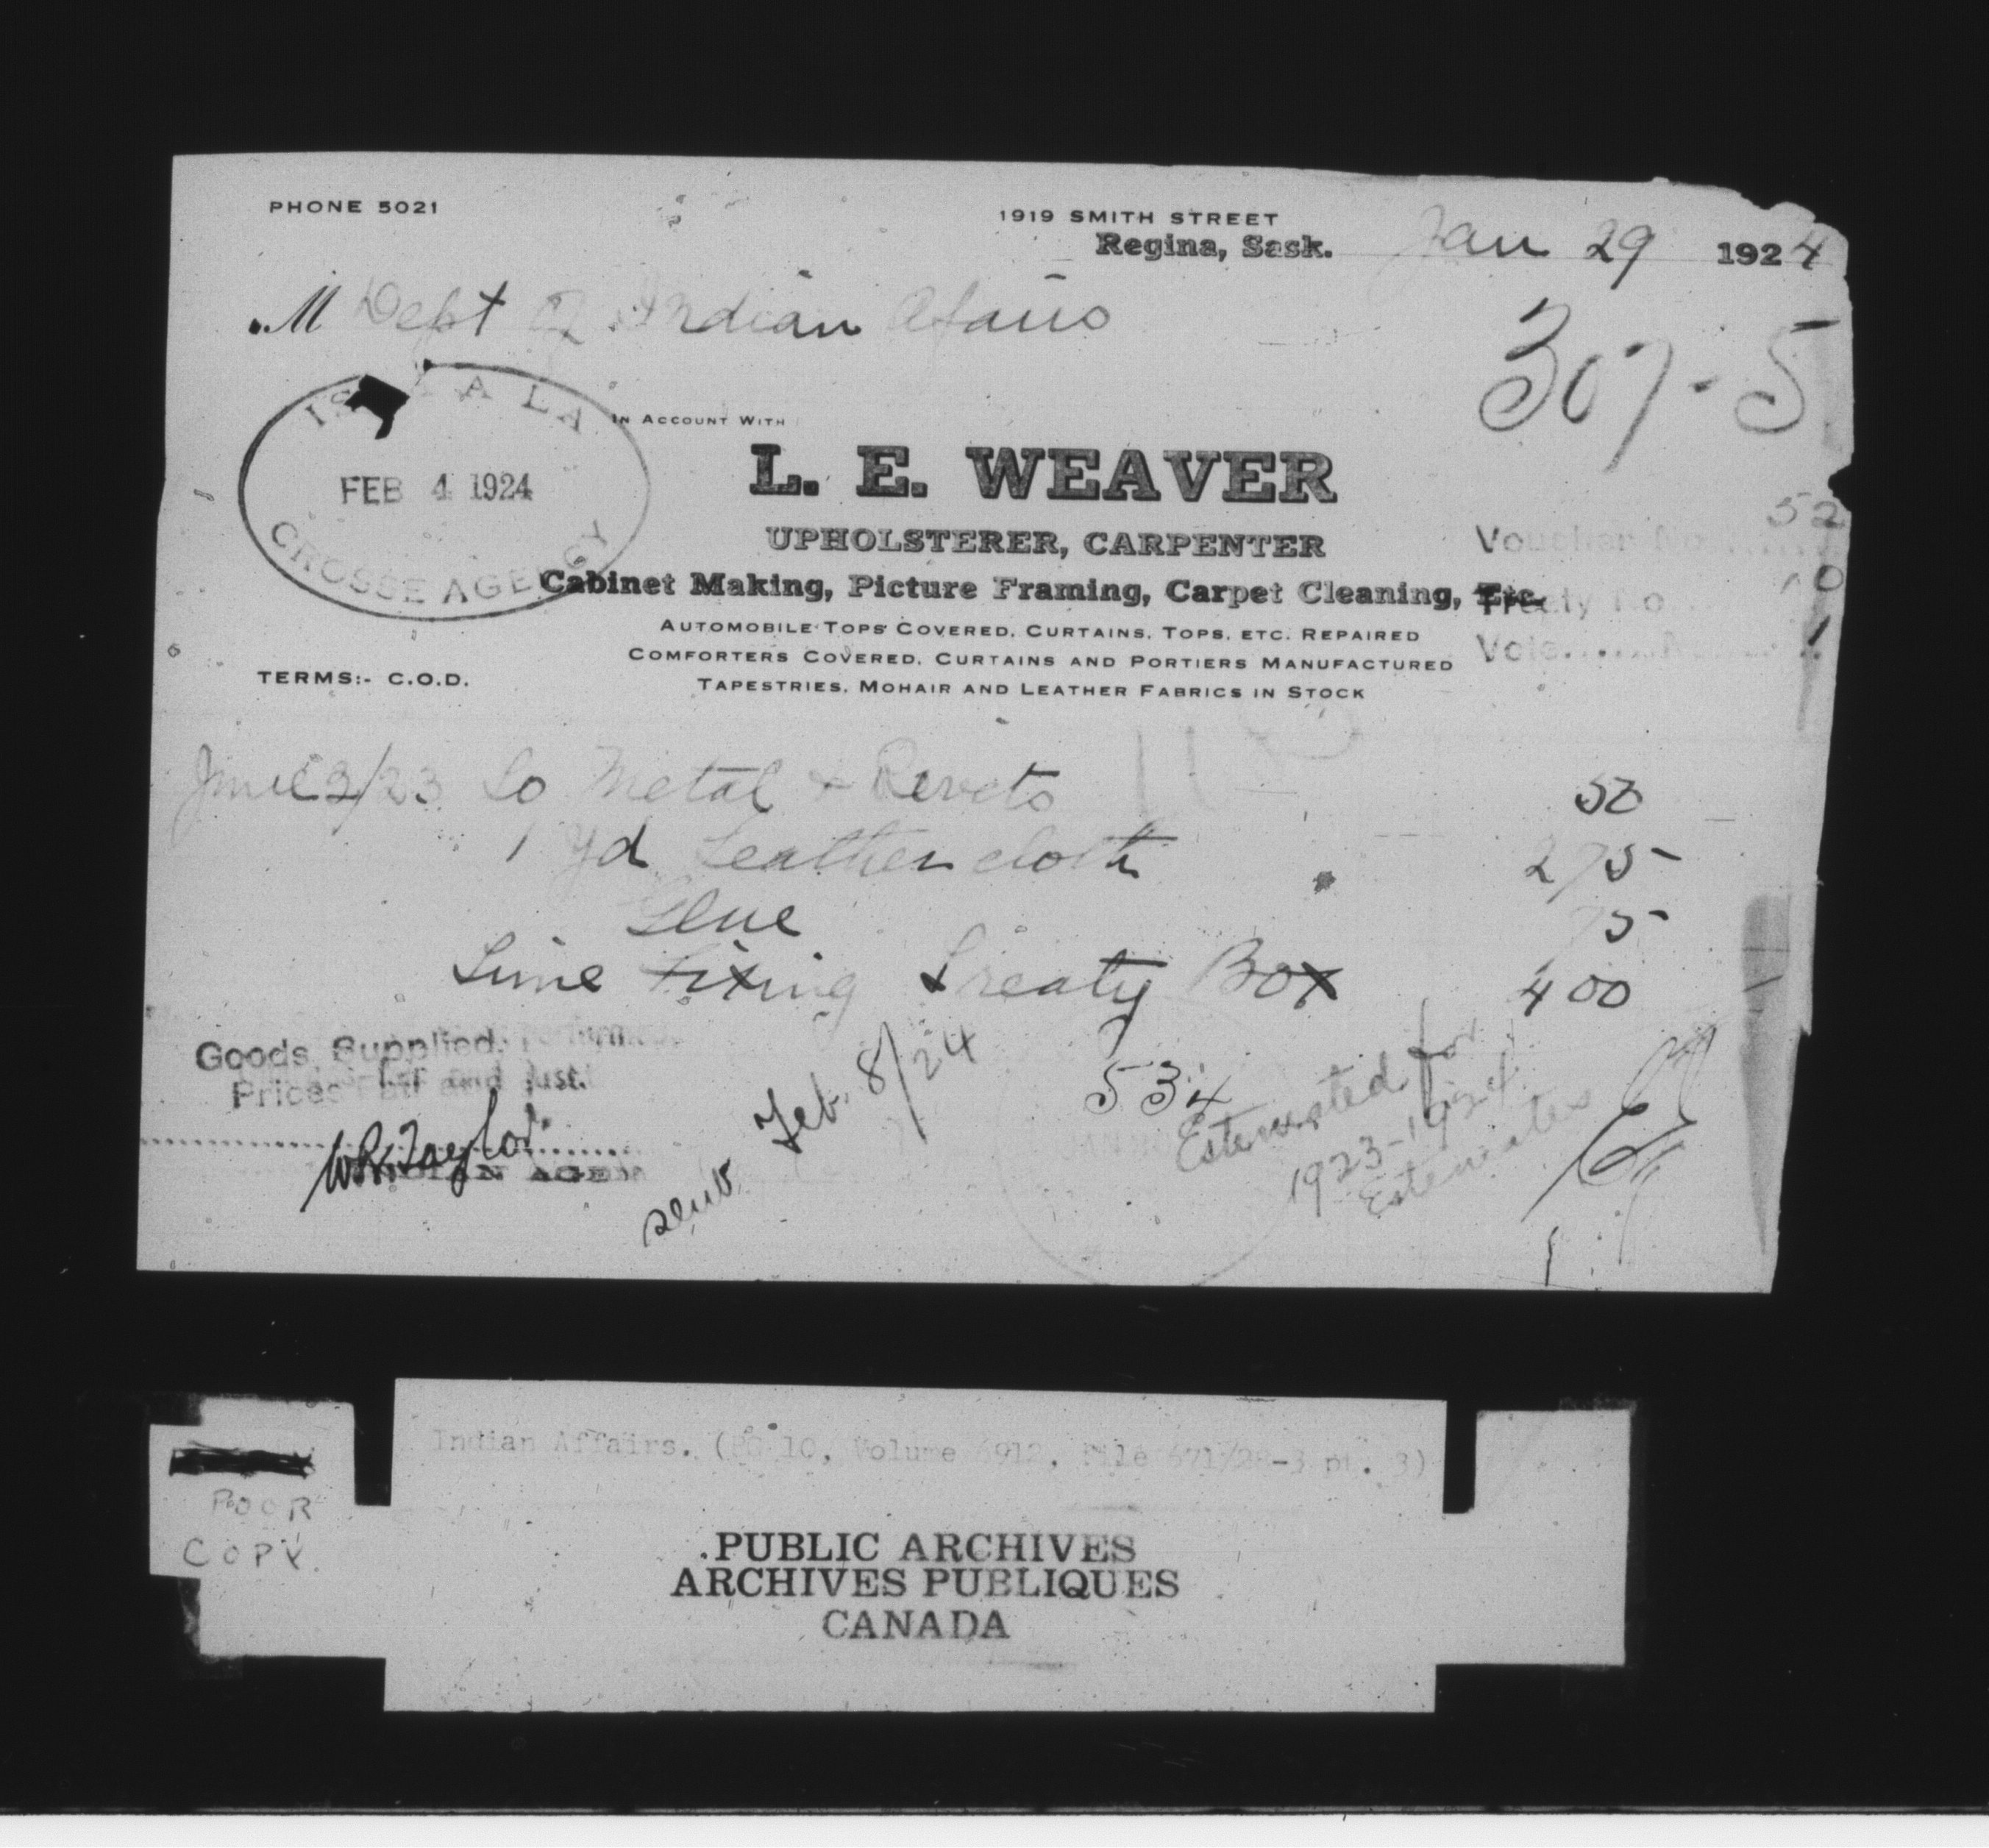 PHONE 5021
1919 SMITH STREET
Regina, Sask. Jan 29 1924
M Dept Indian Afairs
307-5
LA
CROSSE AGENCY
FEB 4 1924
IN ACCOUNT WITH
L. E. WEAVER
UPHOLSTERER, CARPENTER
Cabinet Making, Picture Framing, Carpet Cleaning, Etc.
AUTOMOBILE TOPS COVERED, CURTAINS, TOPS, ETC. REPAIRED
COMFORTERS COVERED, CURTAINS AND PORTIERS MANUFACTURED
TAPESTRIES, MOHAIR AND LEATHER FABRICS IN STOCK
Voucher No. 52
Treaty No.
TERMS:- C.O.D.
June 2/23 To Metal & Revets 50
1 Yd Leather cloth 2 75
Glue 75
Time Fixing Treaty Box 4 00
Goods Supplied,
Prices Fair and Just.
W R Taylor
INDIAN AGEN
Feb. 8/24
534
Estimated for
1923-1924
Estimates
POOR
COPY
Indian Affairs. (RG 10, Volume 6912, File 671/28-3 pt. 3)
PUBLIC ARCHIVES
ARCHIVES PUBLIQUES
CANADA